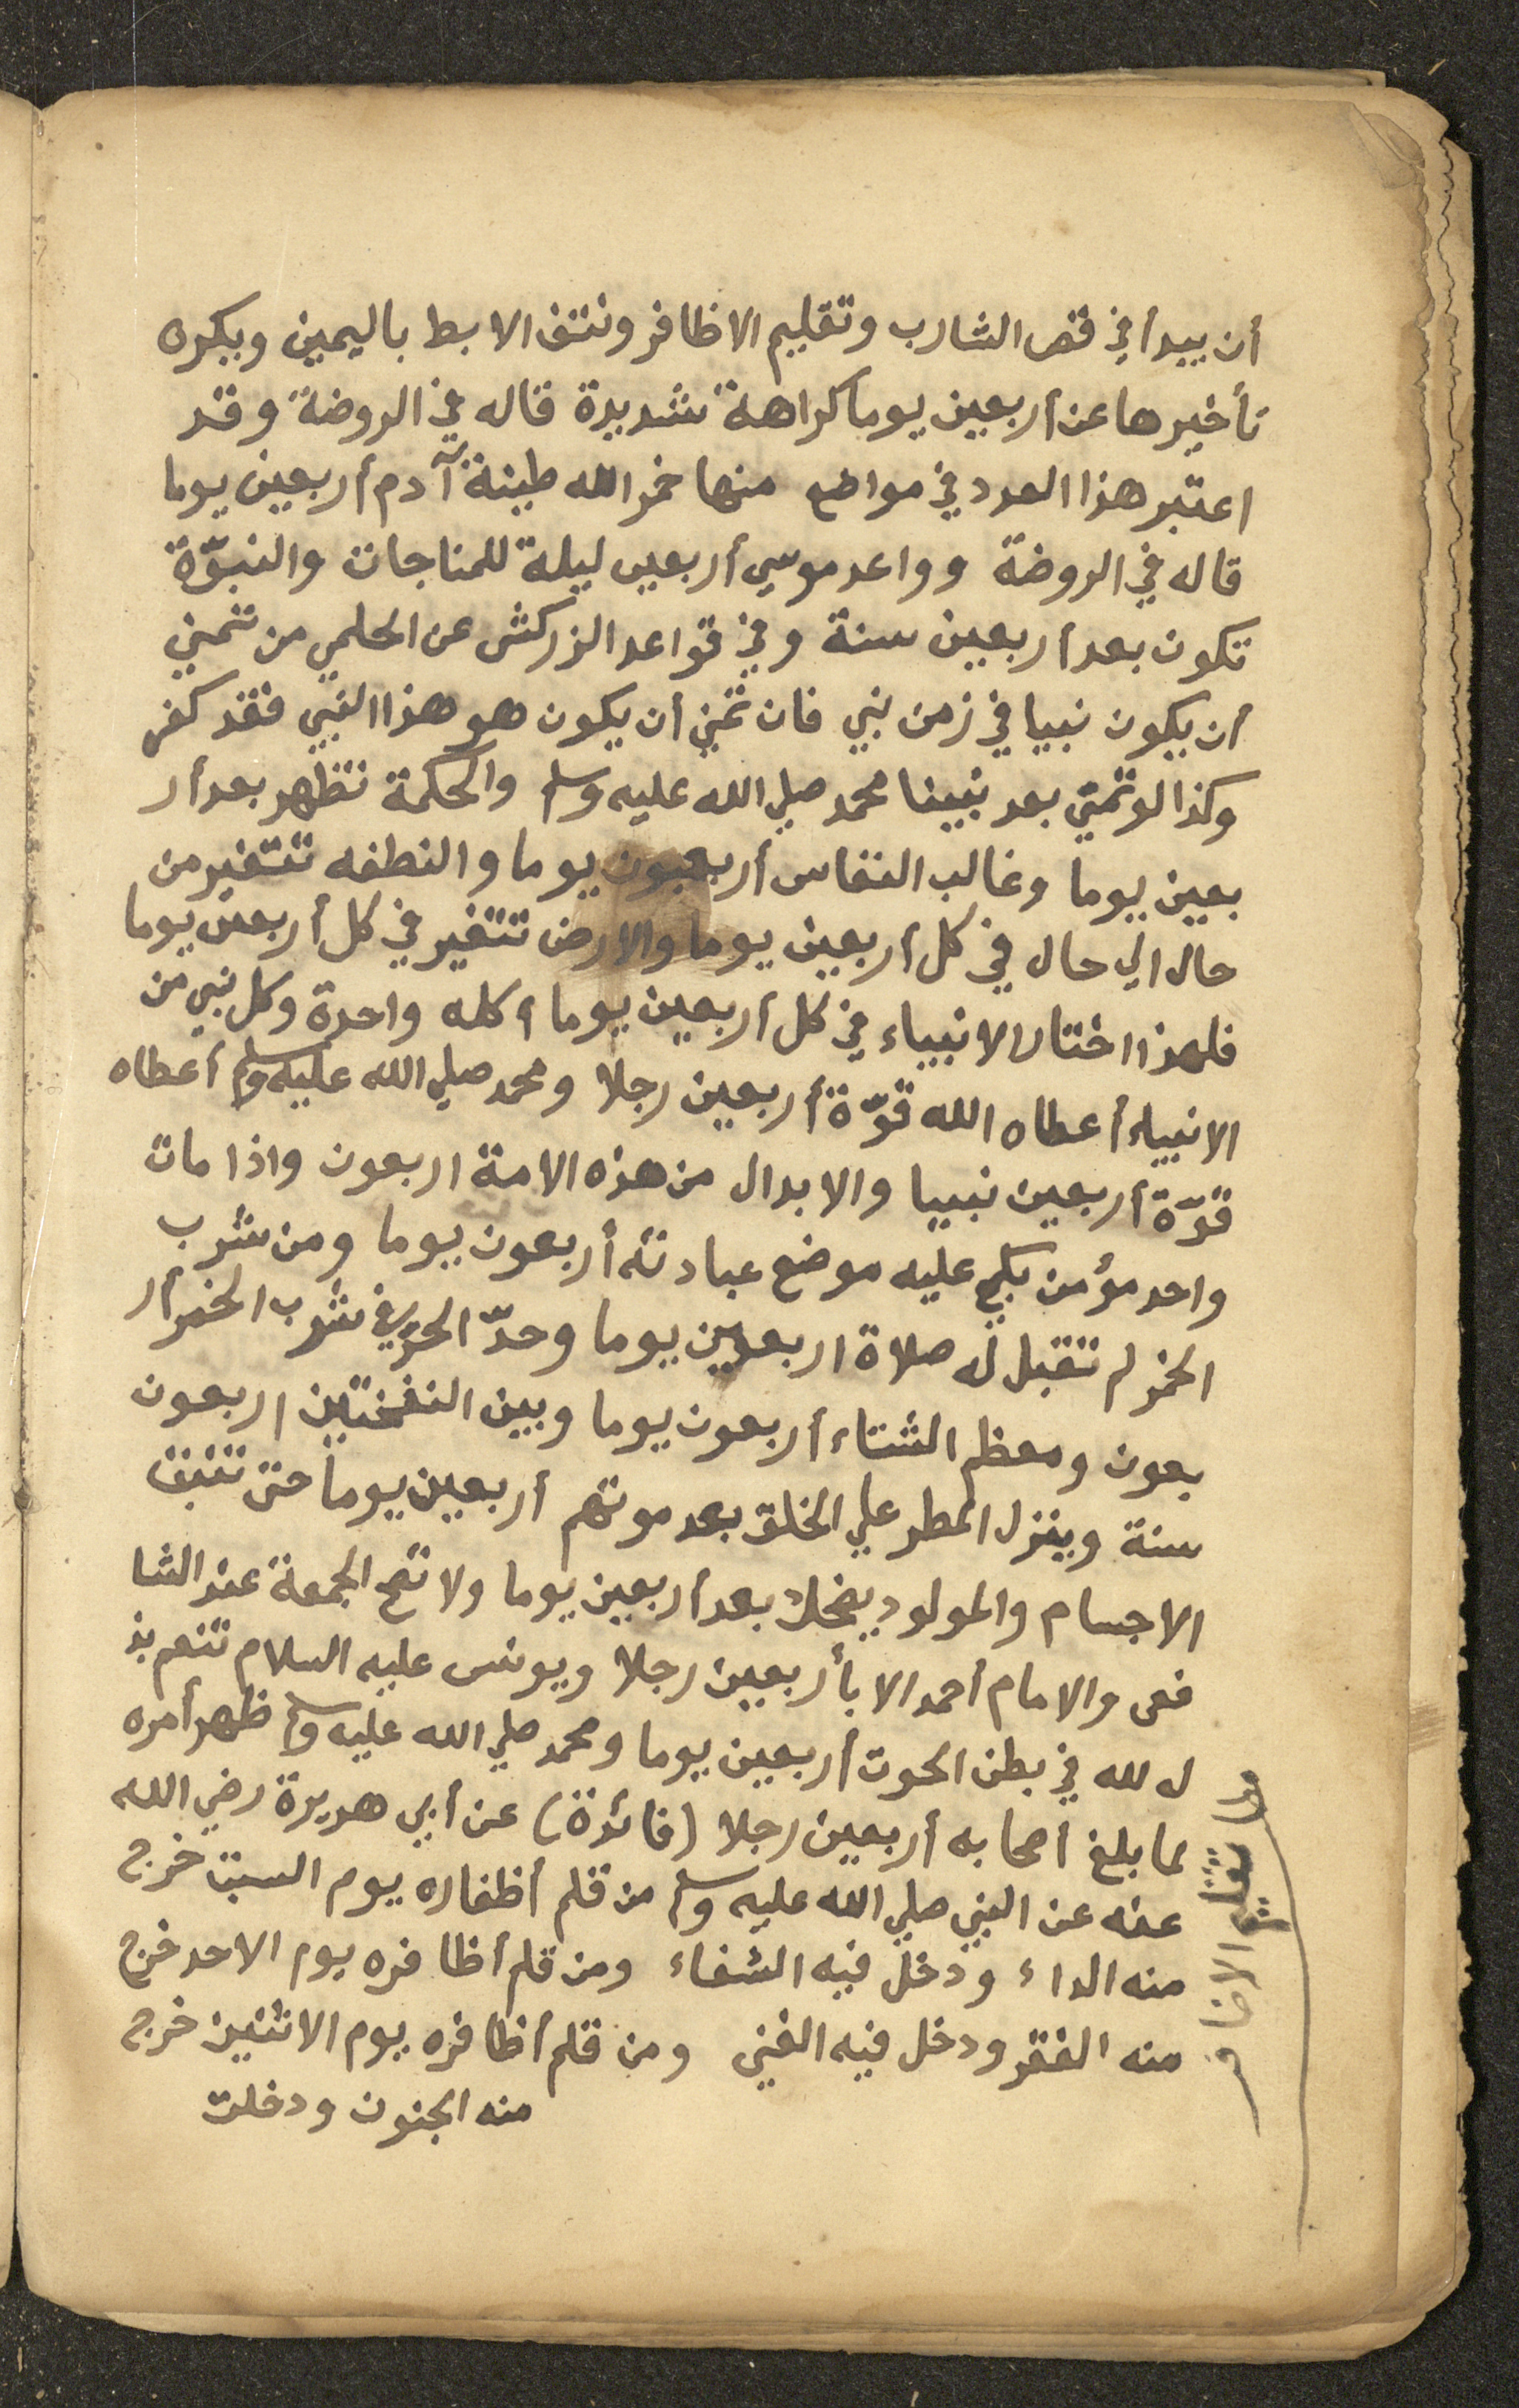 أن يبدأ في قص الشارب وتقليم الاظافر ونتف الابط باليمين ويكره
تأخيرها عن أربعين يوما كراهة شديدة قاله في الروضة وقد
اعتبر هذا العدد في مواضع منها خمر الله طينة آدم أربعين يوما
قاله في الروضة وواعد موسي أربعين ليلة للمناجات والنبوّة
تكون بعد أربعين سنة وفي قواعد الزركش عن الحلمي من تمني
أن يكون نبيا في زمن نبي فان تمني أن يكون هو هذا النبي فقد كفر
وكذا لو تمني بعد نبينا محمد صلي الله عليه وسلم والحكمة تظهر بعد أر
بعين يوما وغالب النفاس أربعون يوما والنطفه تتغير من
حال الي حال في كل أربعين يوما والارض تتغير في كل أربعين يوما
فلهذا اختار الانبياء في كل أربعين يوما أكله واحدة وكل نبي من
الانبياء أعطاه الله قوّة أربعين رجلا ومحمد صلي الله عليه وسلم أعطاه
قوّة أربعين نبيا والابدال من هذه الامة اربعون واذا مات
واحد مؤمن بكي عليه موضع عبادته أربعون يوما ومن شرب
الخمر لم تقبل له صلاة اربعين يوما وحدّ الحرّ في شرب الخمر أر
بعون ومعظم الشتاء أربعون يوما وبين النفختين اربعون
سنة وينزل المطر علي الخلق بعد موتهم أربعين يوما حتى تنبت
الاجسام والمولود يضحك بعد أربعين يوما ولا تصح الجمعة عند الشا
فعى والامام أحمد الا بأربعين رجلا ويونس عليه السلام تنعم بذ
له لله في بطن الحوت أربعين يوما ومحمد صلي الله عليه وسلم ظهر أمره
لما بلغ أصحابه أربعين رجلا (فائدة) عن أبي هريرة رضي الله
عنه عن النبي صلي الله عليه وسلم من قلم أظفاره يوم السبت خرج
منه الداء ودخل فيه الشفاء ومن قلم أظافره يوم الاحد خرج
منه الفقر ودخل فيه الغني ومن قلم أظافره يوم الاثنين خرج
منه الجنون ودخلت
تقليم الاظافر